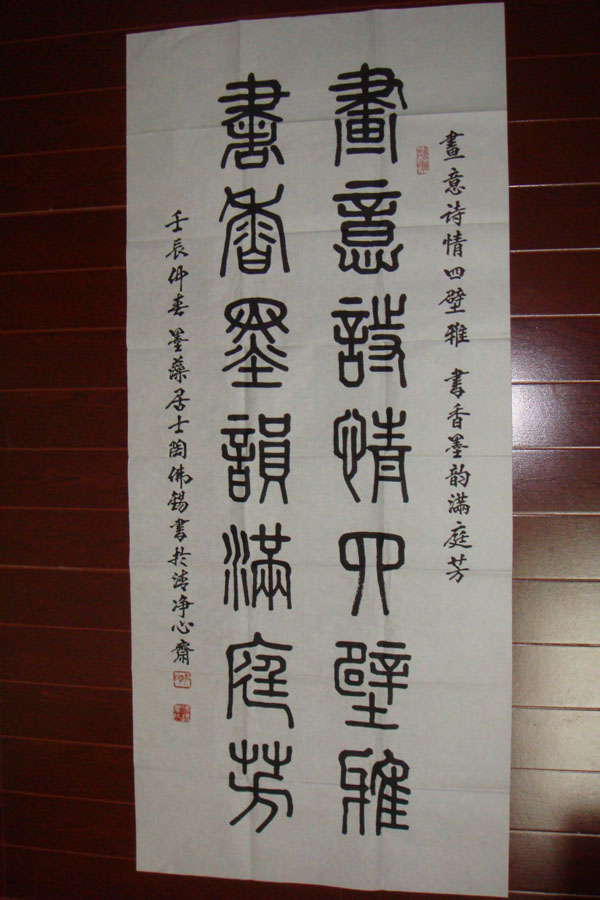 畫意诗情四壁雅 書香墨韵滿庭芳
畫意詩情四壁雅
書香墨韻滿庭芳
壬辰仲春墨藻居士陶佛錫書於清净心齋